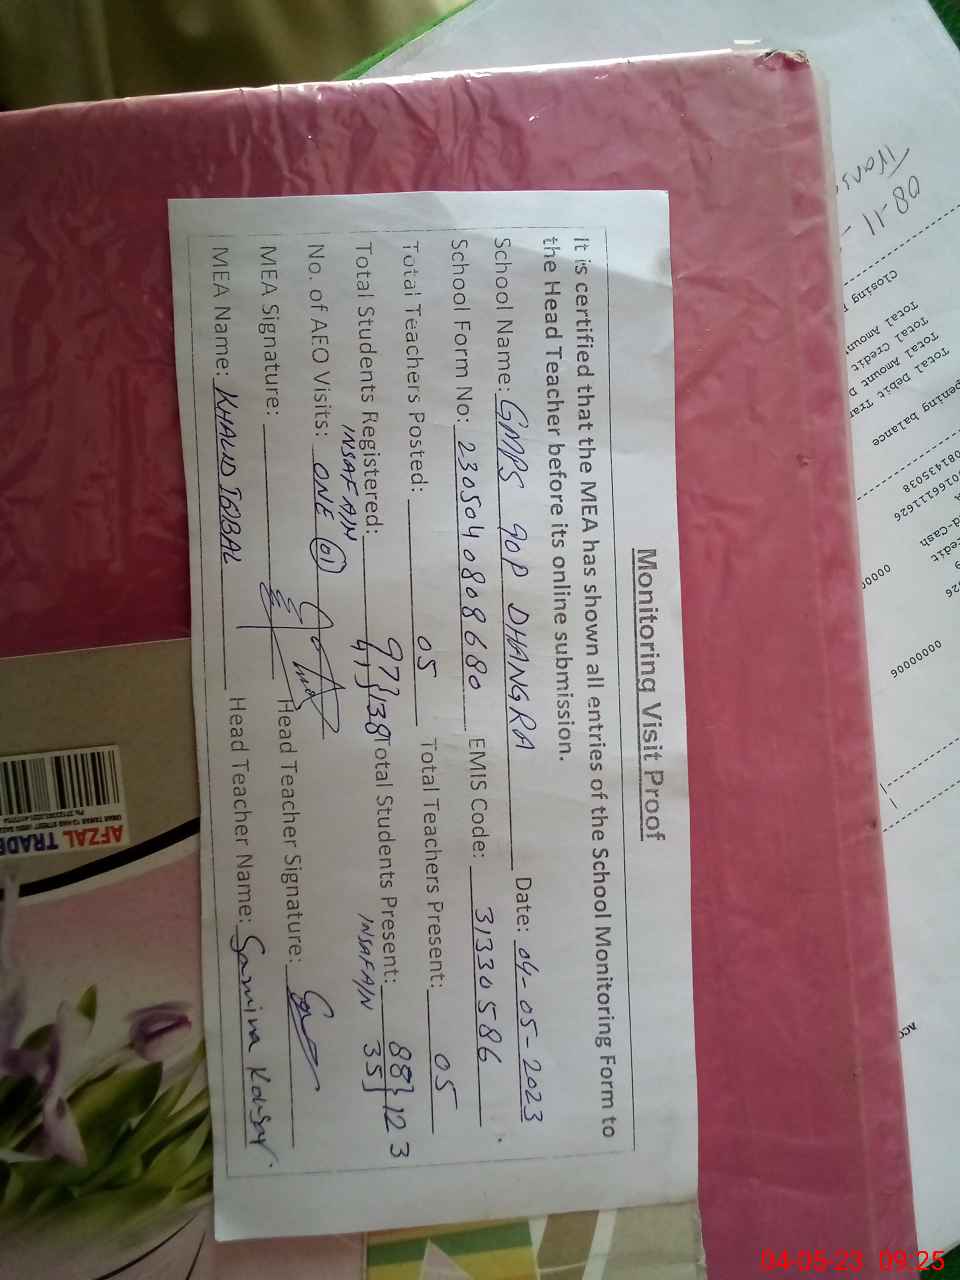 Monitoring Visit Proof
It is certified that the MEA has shown all entries of the School Monitoring Form to
the Head Teacher before its online submission.
School Name: GMPS GOP DHANGRA Date: 04-05-2023
School Form No: 2305040808680 EMIS Code: 31330586
Total Teachers Posted: 05 Total Teachers Present: 05
Total Students Registered: 97 } 138 Total Students Present: 88 } 123
INSAFAIN 41 INSAFAIN 35
No. of AEO Visits: ONE 01
MEA Signature: Head Teacher Signature:
MEA Name: KHALID IQBAL Head Teacher Name: Samina Kousar
AFZAL TRADE
08-11
Closing
Total Amoun
Total Credit
Total Amount D
Total Debit Tran
pening balance
081435038
0166111626
d-Cash
edit
00000
00000006
Acc
04-05-23 09:25